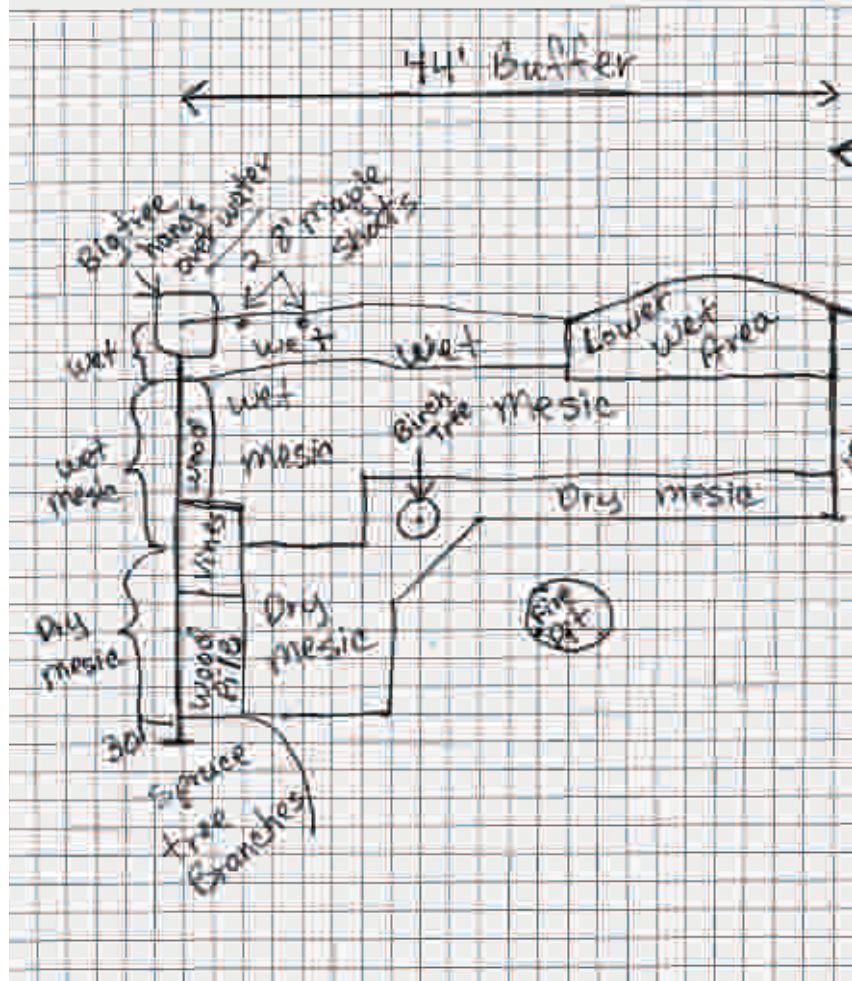 44' Buffer
Big tree
hangs
over water
2 8' maple
shoots
wet
wet
wet
Lower
wet
Area
wet
mesic
wood
wet
mesic
Birch
Tree
mesic
Dry mesic
Vines
Dry
mesic
Wood
Pile
Dry
mesic
Fire
Pit
30'
Spruce
tree
Branches